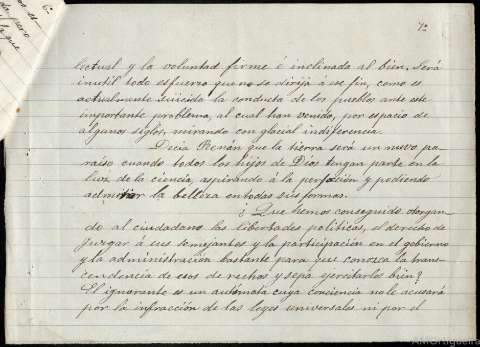 6ª
7ª
lectual y la voluntad firme é inclinada al bien. Será
inutil todo esfuerzo que no se dirija á ese fin, como es
actualmente suicida la conducta de los pueblos ante este
importante problema, al cual han venido, por espacio de
algunos siglos, mirando con glacial indiferencia.
Decia Renán que la tierra será un nuevo pa-
raiso cuando todos los hijos de Dios tengan parte en la
luz de la ciencia, aspirando á la perfeción y pudiendo
admirar la belleza en todas sus formas.
¿Que hemos conseguido otorgan-
do al ciudadano las libertades politicas, el derecho de
juzgar á sus semejantes y la participación en el gobierno
y la administración bastante para que conozca la trans-
cendencia de esos derechos y sepa ejercitarlos bien?
El ignorante es un autómata cuya conciencia no le acusará
por la infracción de las leyes universales ni por el